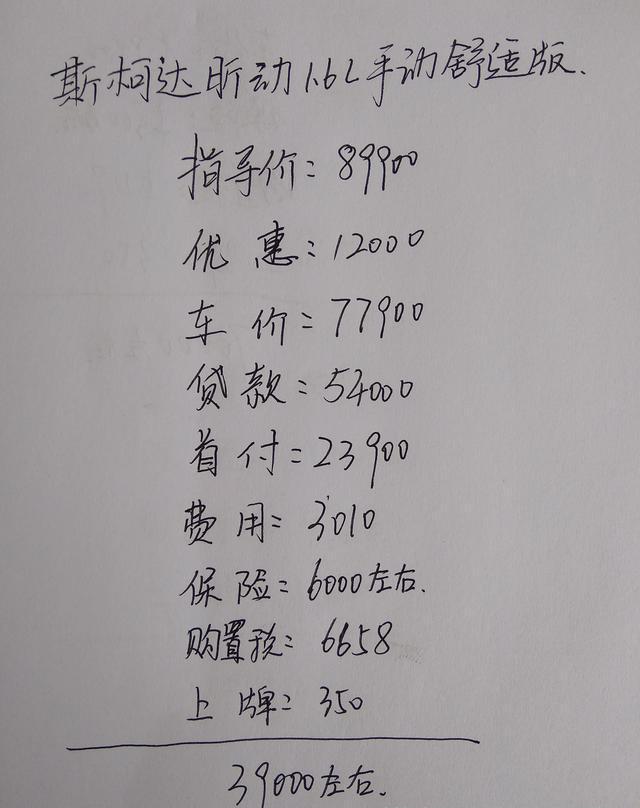 斯柯达昕动1.6L手动舒适版.
指导价:89900
优惠:12000
车价=77900
贷款=54000
首付=23900
费用=3010
保险=6000左右.
购置税=6658
上牌=350
39000左右.